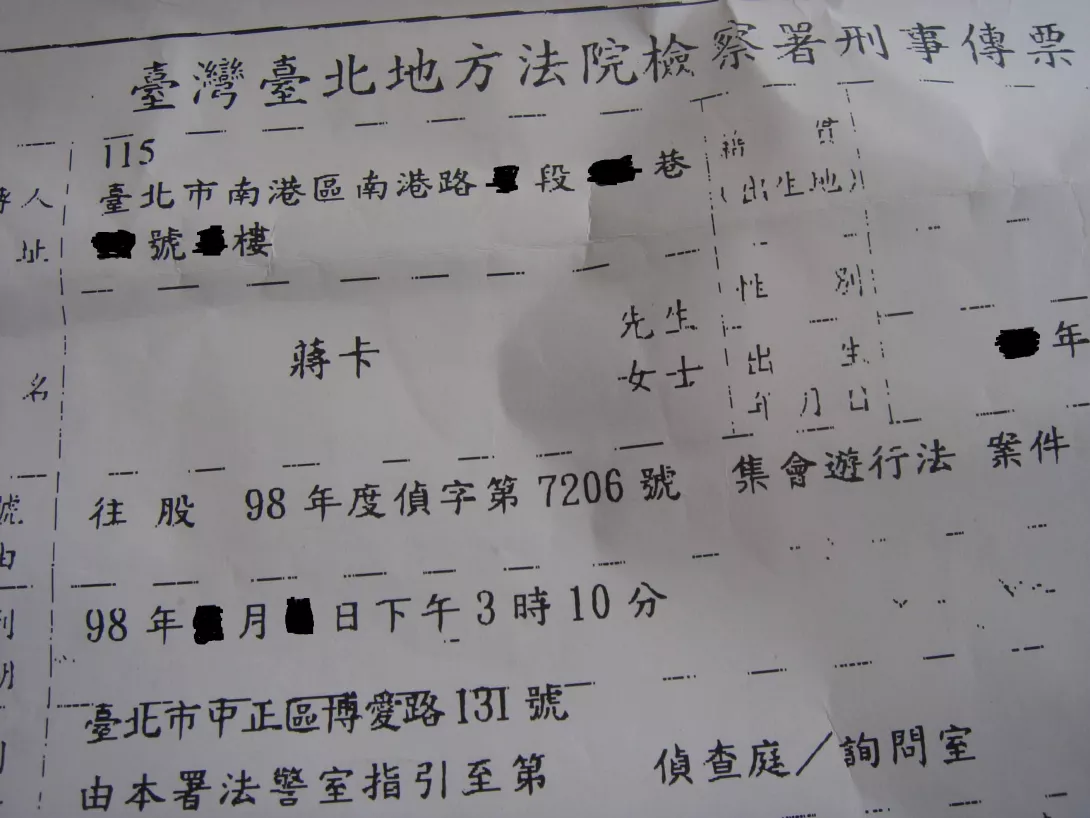 臺灣臺北地方法院檢察署刑事傳票
115
臺北市南港區南港路 段 巷
號 樓
人
址
籍貫
(出生地)
性別
名
蔣卡
先生
女士
出生
年月日
年
號
由
往股 98年度偵字第7206號 集會遊行法 案件
98年 月 日下午3時10分
臺北市中正區博愛路131號
由本署法警室指引至第 偵查庭/詢問室